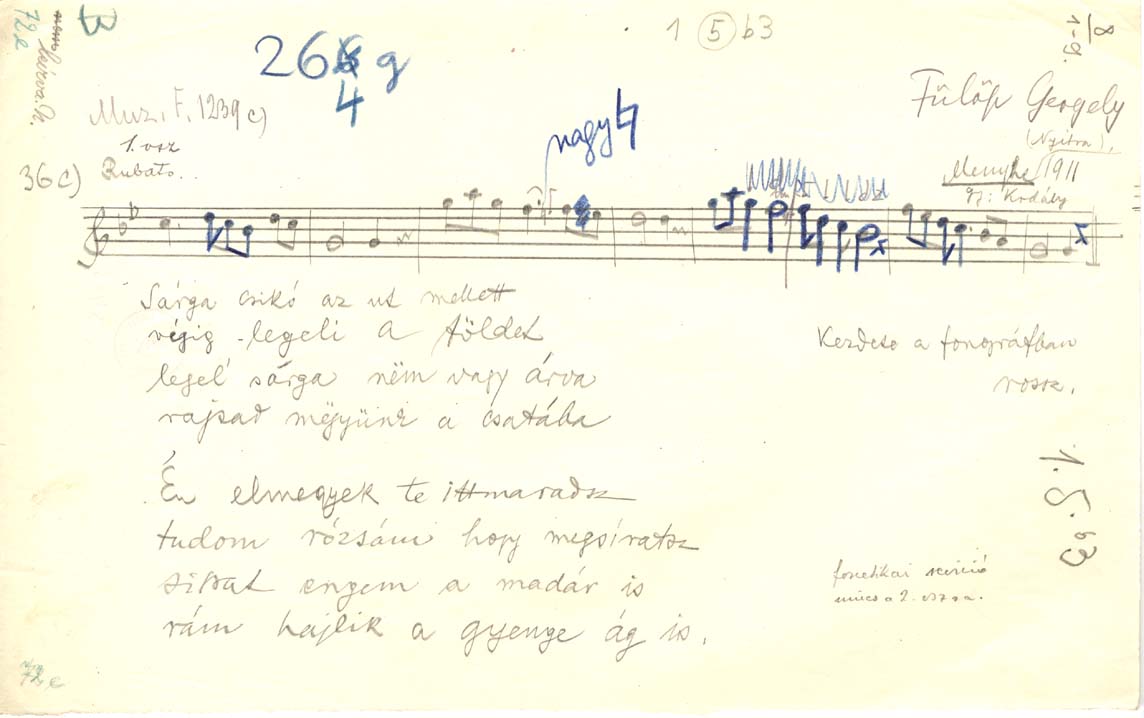 B
72e
266 g
4
1 5 b3
8
1-9.
Muz. F. 1239 c)
1. vsz
36 c) Rubato.
nagy
Fülöp Gergely
(Nyitra),
Menyhe 1911
gy: Kodály
Sárga csikó az ut mellett
végig legeli a földet
legel sárga nëm vagy árva
rajtad mëgyünk a csatába
Kezdete a fonográfban
rossz.
Én elmegyek te ittmaradsz
tudom rózsám hogy megsiratsz
sirat engem a madár is
rám hajlik a gyenge ág is.
1. 5. b3
nincs a 2. vsz-a.
72 e